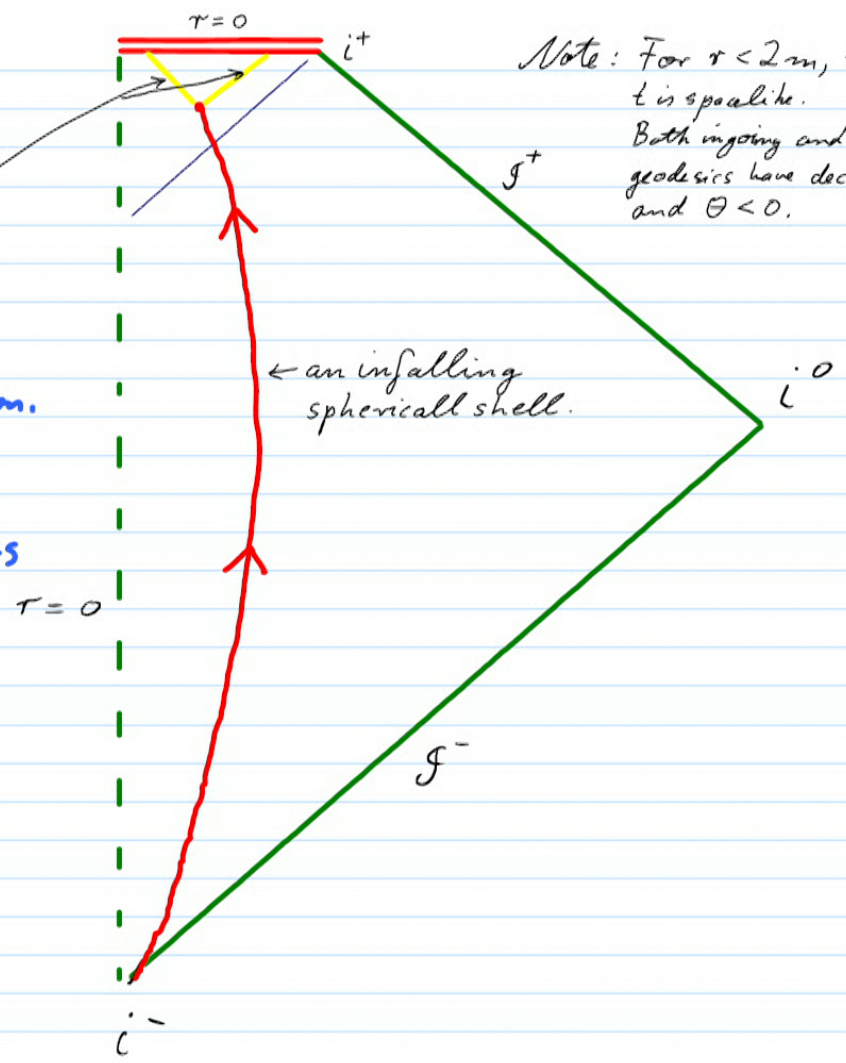 r = 0
i⁺
Note: For r < 2m,
t is spacelike.
Both ingoing and
geodesics have dec
and θ < 0.
𝓘⁺
i⁰
← an infalling
sphericall shell.
m.
s
r = 0
𝓘⁻
i⁻